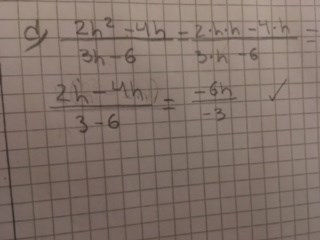 d) (2h² - 4h)/(3h - 6) = (2·h·h - 4·h)/(3·h - 6) =
(2h - 4h)/(3 - 6) = (-6h)/(-3) ✓